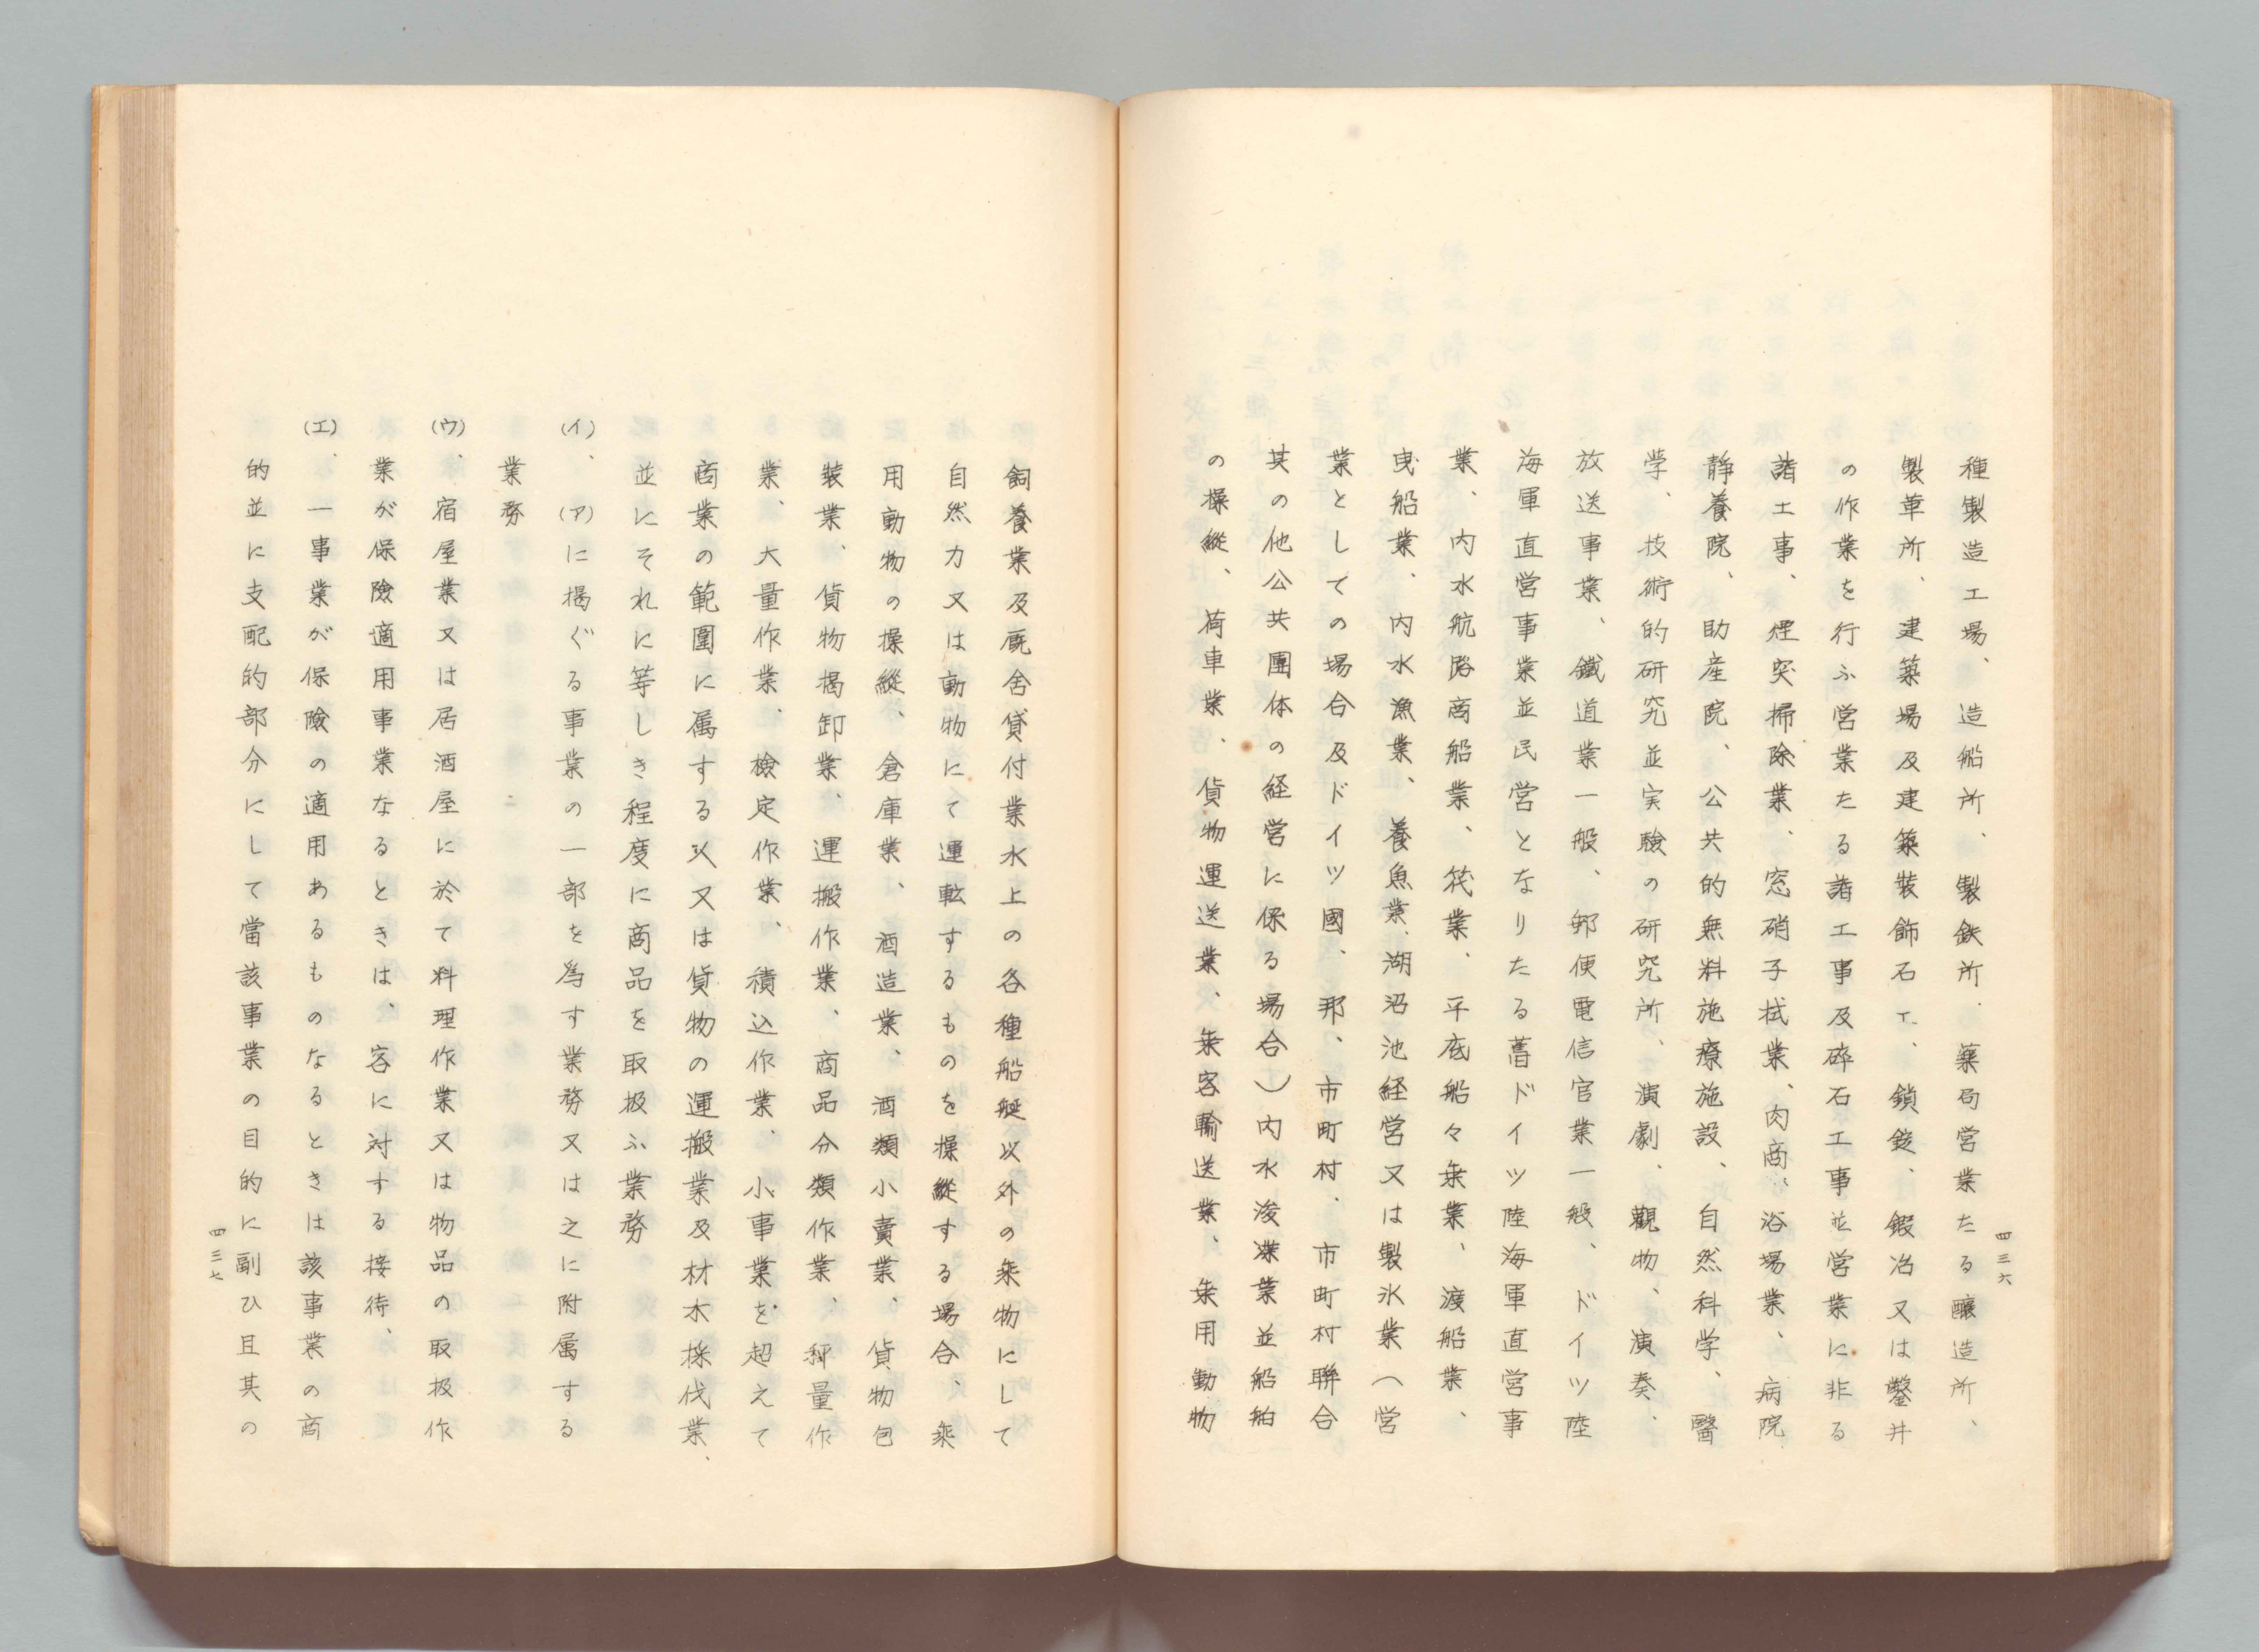 種製造工場、造船所、製鉄所、薬局営業たる醸造所、
製革所、建築場及建築装飾石工、鎖錠、鍛冶又は鑿井
の作業を行ふ営業たる諸工事及碎石工事並営業に非る
諸土事、煙突掃除業、窓硝子拭業、肉商、浴場業、病院
静養院、助産院、公共的無料施療施設、自然科学、醫
学、技術的研究並実驗の研究所、演劇、観物、演奏、
放送事業、鐵道業一般、郵便電信官業一般、ドイツ陸
海軍直営事業並民営となりたる舊ドイツ陸海軍直営事
業、内水航路商船業、筏業、平底船々乗業、渡船業、
曳船業、内水漁業、養魚業、湖沼池経営又は製氷業（営
業としての場合及ドイツ國、邦、市町村、市町村聯合
其の他公共團体の経営に係る場合）内水浚渫業並船舶
の操縦、荷車業、貨物運送業、乗客輸送業、乗用動物
四三六
飼養業及厩舎貸付業水上の各種船艇以外の乗物にして
自然力又は動物にて運転するものを操縦する場合、乗
用動物の操縦、倉庫業、酒造業、酒類小賣業、貨物包
装業、貨物揚卸業、運搬作業、商品分類作業、秤量作
業、大量作業、檢定作業、積込作業、小事業を超えて
商業の範圍に属する又は貨物の運搬業及材木採伐業、
並にそれに等しき程度に商品を取扱ふ業務
(イ)、(ア)に掲ぐる事業の一部を為す業務又は之に附属する
業務
(ウ)、宿屋業又は居酒屋に於て料理作業又は物品の取扱作
業が保險適用事業なるときは、客に対する接待、
(エ)、一事業が保險の適用あるものなるときは該事業の商
的並に支配的部分にして當該事業の目的に副ひ且其の
四三七